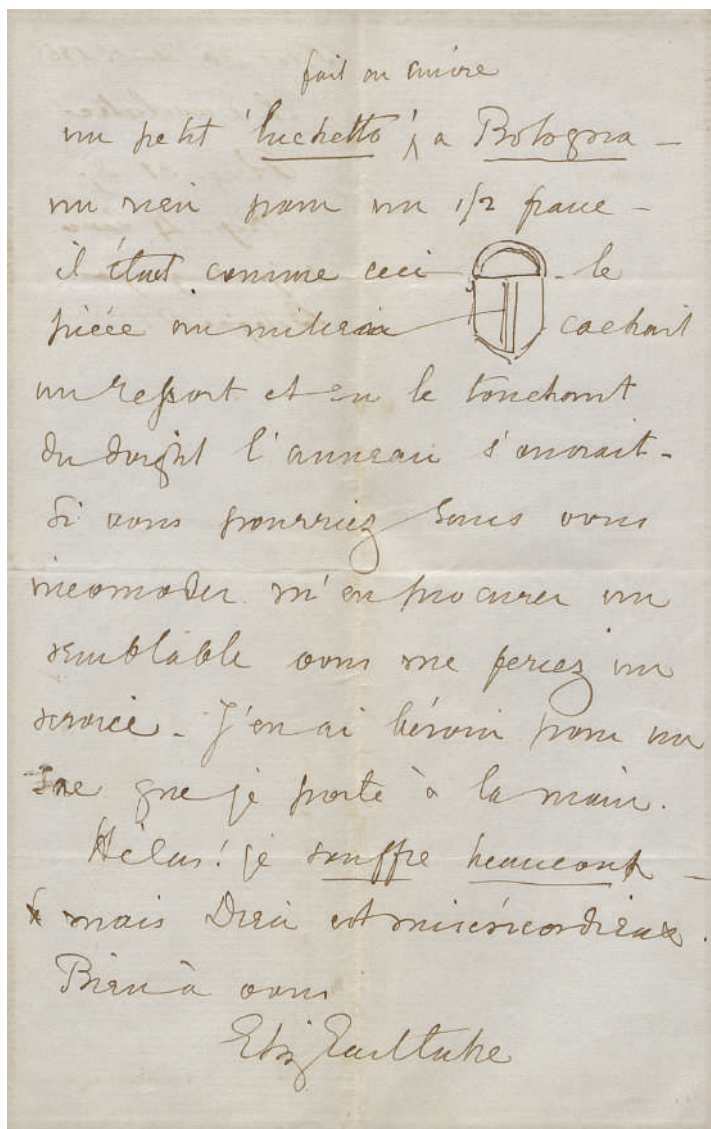 fait en cuivre
un petit 'luchetto' a Bologna –
un rien pour un 1/2 franc –
il était comme ceci – le
pièce au milieu cachait
un ressort et en le touchant
du doight l'anneau s'ouvrait –
Si vous pourriez sans vous
incomoder m'en procurer un
semblable vous me feriez un
service – J'en ai bésoin pour un
sac que je porte à la main.
Hélas! je souffre beaucoup –
mais Dieu est miséricordieux.
Bien à vous
Eliz